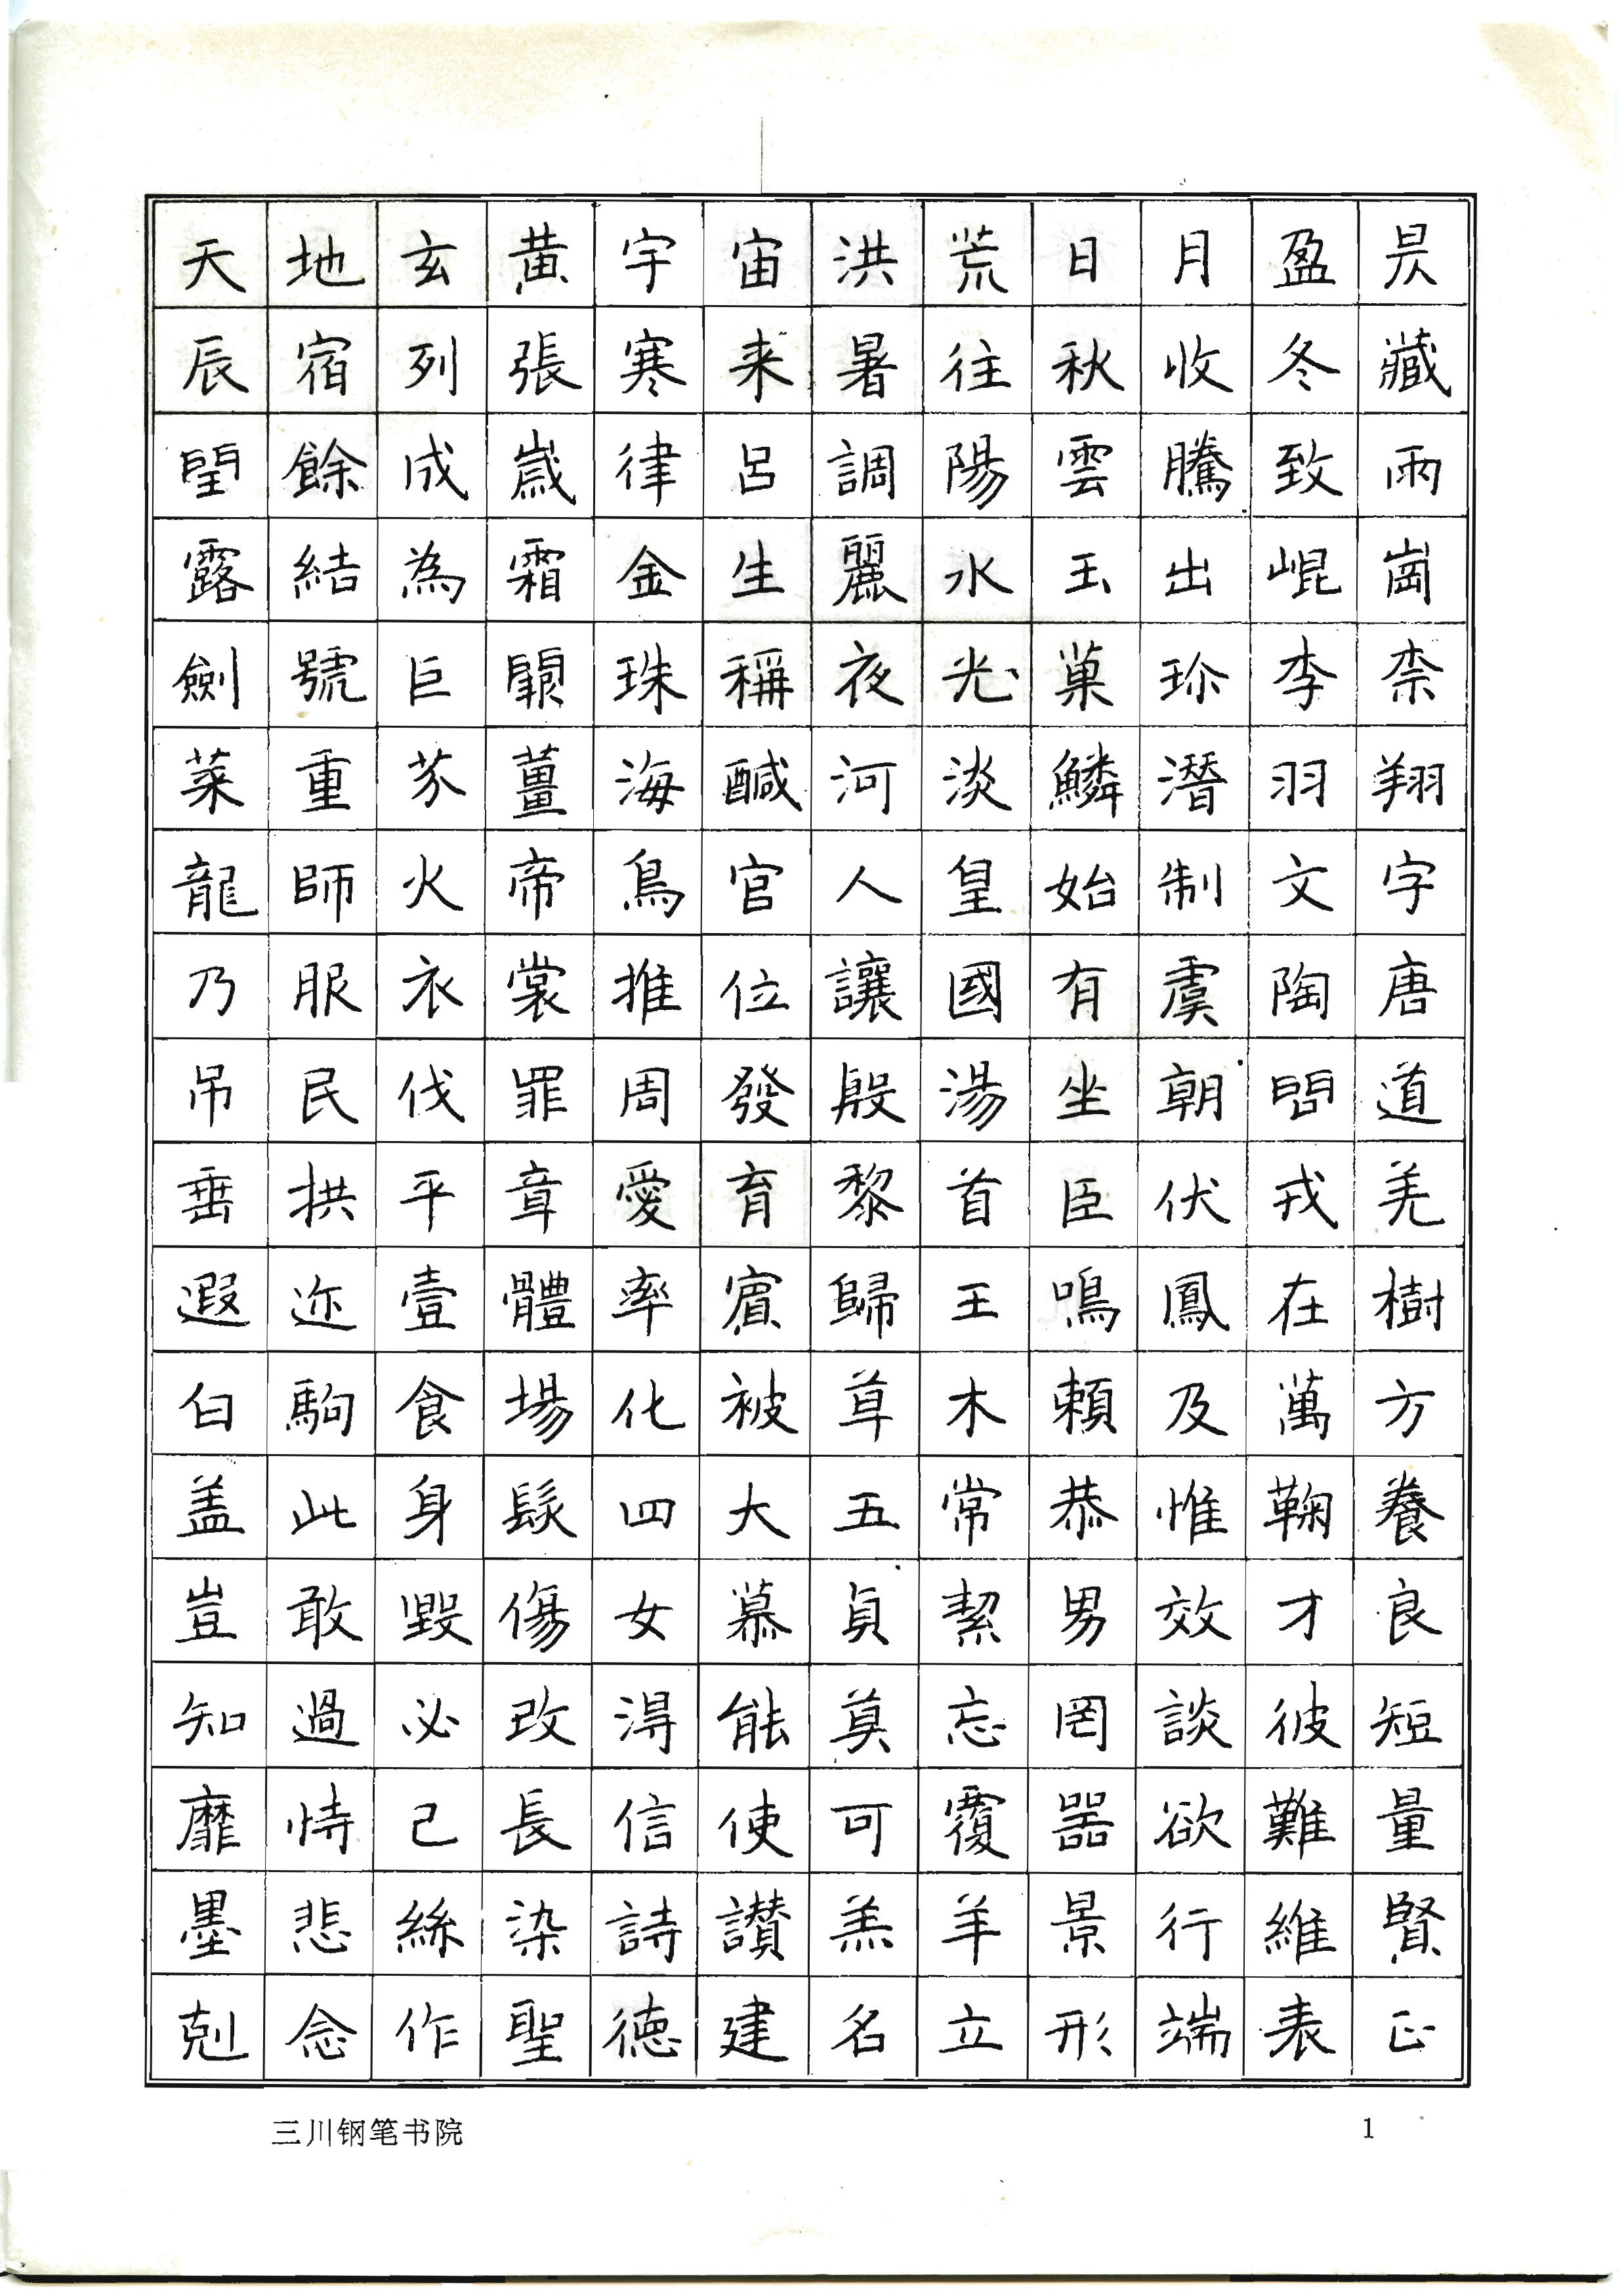 天地玄黄宇宙洪荒日月盈昃
辰宿列張寒来暑往秋收冬藏
閏餘成歲律呂調陽雲騰致雨
露結為霜金生麗水玉出崐崗
劍號巨闕珠稱夜光菓珎李柰
菜重芥薑海醎河淡鱗潛羽翔
龍師火帝鳥官人皇始制文字
乃服衣裳推位讓國有虞陶唐
吊民伐罪周發殷湯坐朝問道
垂拱平章愛育黎首臣伏戎羌
遐迩壹體率賓歸王鳴鳳在樹
白駒食場化被草木賴及萬方
盖此身髮四大五常恭惟鞠養
豈敢毀傷女慕貞絜男效才良
知過必改得能莫忘罔談彼短
靡恃己長信使可覆器欲難量
墨悲絲染詩讚羔羊景行維賢
剋念作聖德建名立形端表正
三川钢笔书院 1